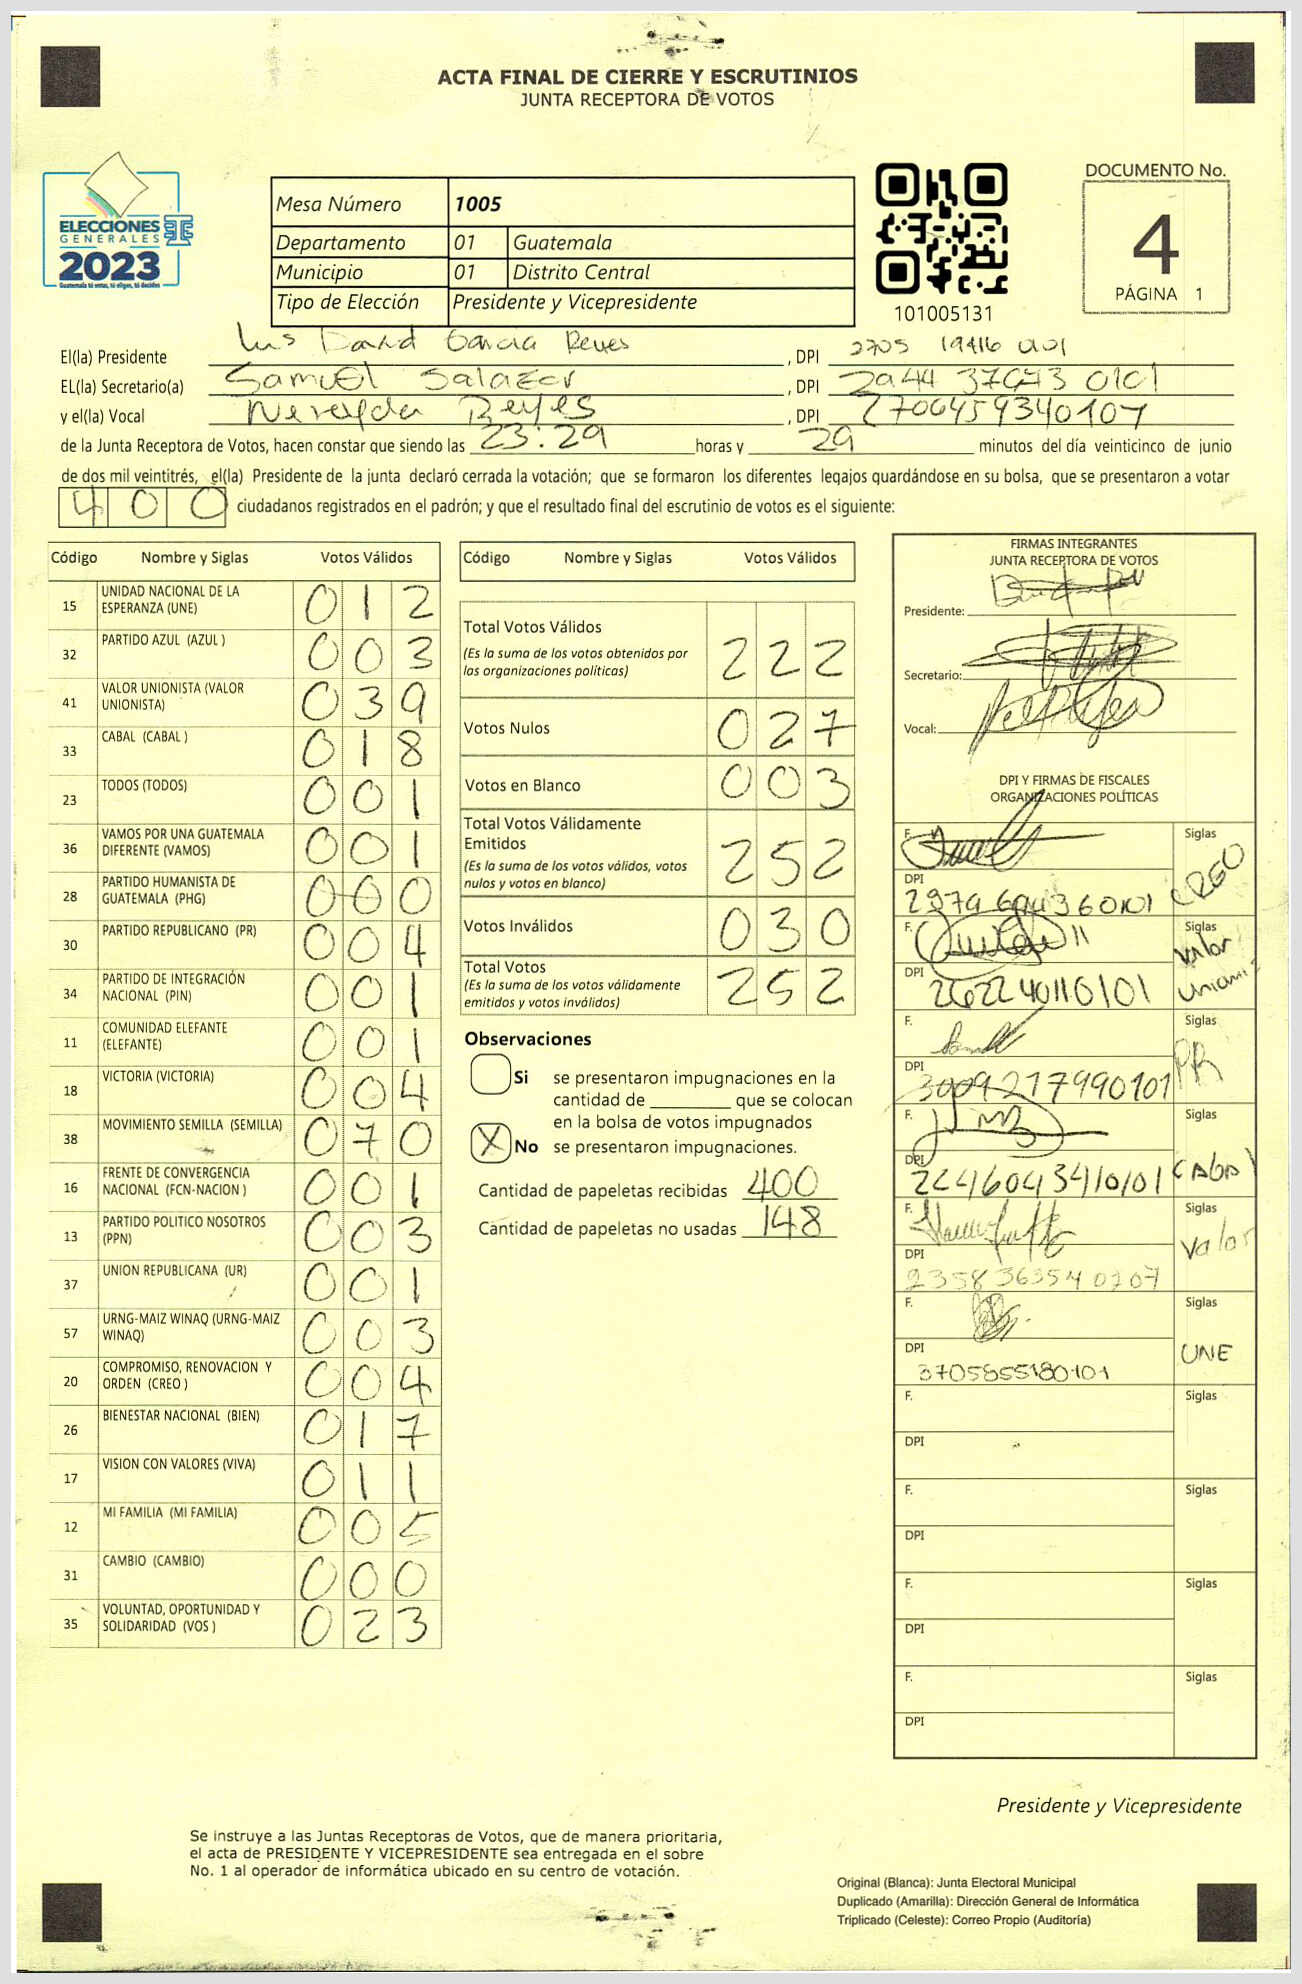 ACTA FINAL DE CIERRE Y ESCRUTINIOS
JUNTA RECEPTORA DE VOTOS
ELECCIONES
GENERALES
2023
Guatemala tú votas, tú eliges, tú decides
Mesa Número 1005
Departamento 01 Guatemala
Municipio 01 Distrito Central
Tipo de Elección Presidente y Vicepresidente
101005131
DOCUMENTO No.
4
PÁGINA 1
El(la) Presidente Luis David Garcia Reyes, DPI 2705
EL(la) Secretario(a) Samuel Salazar, DPI 2944 0101
y el(la) Vocal Nereyda Reyes, DPI 2706459340107
de la Junta Receptora de Votos, hacen constar que siendo las 23:29 horas y 29 minutos del día veinticinco de junio
de dos mil veintitrés, el(la) Presidente de la junta declaró cerrada la votación; que se formaron los diferentes legajos guardándose en su bolsa, que se presentaron a votar
400 ciudadanos registrados en el padrón; y que el resultado final del escrutinio de votos es el siguiente:
Código Nombre y Siglas Votos Válidos
15 UNIDAD NACIONAL DE LA ESPERANZA (UNE) 012
32 PARTIDO AZUL (AZUL ) 003
41 VALOR UNIONISTA (VALOR UNIONISTA) 039
33 CABAL (CABAL ) 018
23 TODOS (TODOS) 001
36 VAMOS POR UNA GUATEMALA DIFERENTE (VAMOS) 001
28 PARTIDO HUMANISTA DE GUATEMALA (PHG) 000
30 PARTIDO REPUBLICANO (PR) 004
34 PARTIDO DE INTEGRACIÓN NACIONAL (PIN) 001
11 COMUNIDAD ELEFANTE (ELEFANTE) 001
18 VICTORIA (VICTORIA) 004
38 MOVIMIENTO SEMILLA (SEMILLA) 070
16 FRENTE DE CONVERGENCIA NACIONAL (FCN-NACION ) 001
13 PARTIDO POLITICO NOSOTROS (PPN) 003
37 UNION REPUBLICANA (UR) 001
57 URNG-MAIZ WINAQ (URNG-MAIZ WINAQ) 003
20 COMPROMISO, RENOVACION Y ORDEN (CREO ) 004
26 BIENESTAR NACIONAL (BIEN) 017
17 VISION CON VALORES (VIVA) 011
12 MI FAMILIA (MI FAMILIA) 005
31 CAMBIO (CAMBIO) 000
35 VOLUNTAD, OPORTUNIDAD Y SOLIDARIDAD (VOS ) 023
Código Nombre y Siglas Votos Válidos
Total Votos Válidos 222
(Es la suma de los votos obtenidos por
las organizaciones políticas)
Votos Nulos 027
Votos en Blanco 003
Total Votos Válidamente
Emitidos 252
(Es la suma de los votos válidos, votos
nulos y votos en blanco)
Votos Inválidos 030
Total Votos 252
(Es la suma de los votos válidamente
emitidos y votos inválidos)
Observaciones
Si se presentaron impugnaciones en la
cantidad de ________ que se colocan
en la bolsa de votos impugnados
X No se presentaron impugnaciones.
Cantidad de papeletas recibidas 400
Cantidad de papeletas no usadas 148
FIRMAS INTEGRANTES
JUNTA RECEPTORA DE VOTOS
Presidente:
Secretario:
Vocal:
DPI Y FIRMAS DE FISCALES
ORGANIZACIONES POLÍTICAS
F. Siglas CREO
DPI
F. Siglas Valor
DPI 262240110101
F. Siglas PR
DPI 3009217990101
F. Siglas
DPI 2246043410101
F. Siglas Valor
DPI 2358363540207
F. Siglas UNE
DPI 3705855180101
F. Siglas
DPI
F. Siglas
DPI
F. Siglas
DPI
F. Siglas
DPI
Presidente y Vicepresidente
Se instruye a las Juntas Receptoras de Votos, que de manera prioritaria,
el acta de PRESIDENTE Y VICEPRESIDENTE sea entregada en el sobre
No. 1 al operador de informática ubicado en su centro de votación.
Original (Blanca): Junta Electoral Municipal
Duplicado (Amarilla): Dirección General de Informática
Triplicado (Celeste): Correo Propio (Auditoría)